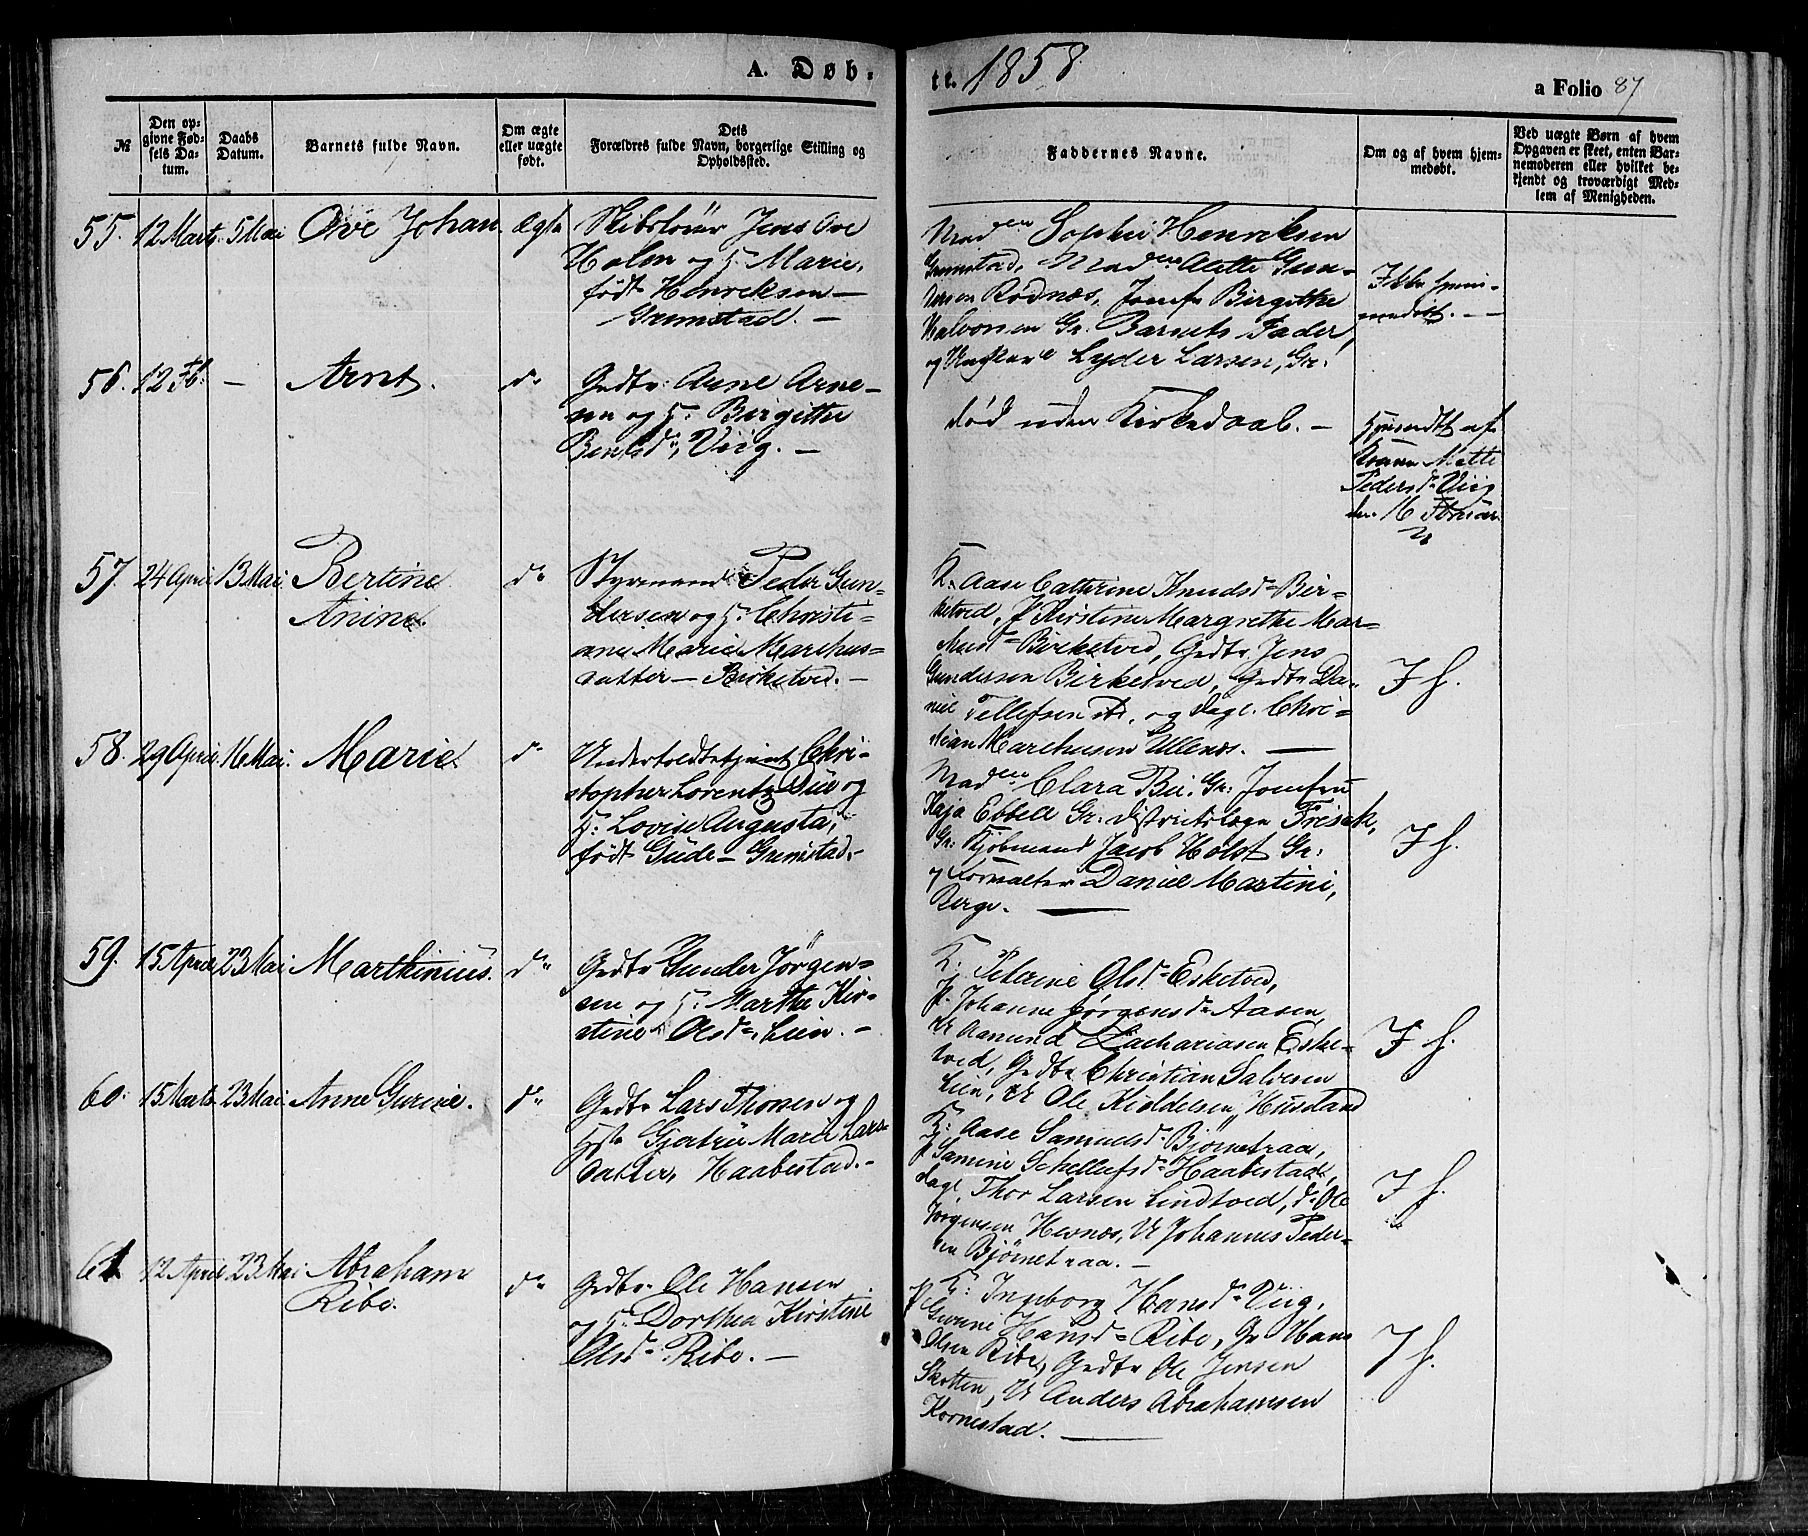 A. Døb-
te. 1858.
a Folio 87
№
Den op-
givne Fød-
sels Da-
tum.
Daabs
Datum.
Barnets fulde Navn.
Om ægte
eller uægte
født.
Dets
Forældres fulde Navn, borgerlige Stilling og
Opholdssted.
Faddernes Navne.
Om og af hvem hjem-
medøbt.
Ved uægte Børn af hvem
Opgaven er skeet, enten Bar-
nemoderen eller hvilket be-
kjendt og troværdigt Med-
lem af Menigheden.
55. 12 Marts. 5 Mai Ove Johan. ægte
Jens Ove
Holm og H. Marie,
født Henriksen —
Grimstad. —
Mad Sophie Henriksen
Grimstad, Mad Alette Gun-
dersen Rødnæs, Jomfr Birgithe
Halvorsen Gr. Barnets Fader,
og Lyder Larsen, Gr.
Ikke hjem-
medøbt. —
56. 12 Fb. — Arnt. do
Gdbr. Arne Arne-
sen og H. Birgithe
Bentsd., Viig. —
død uden Kirkedaab. —
Hjemdøbt af
Konen Mette
Pedersd. Viig
57. 24 April 13 Mai. Bertine
Anine. do
Styrmand Peder Gun-
dersen og H. Christi-
ane Marie Marchus-
datter — Birketved. —
K. Aase Cathrine Knudsd. Bir-
ketved, P. Kirstine Margrethe Mar-
kusd. Birketved, Gdbr. Jens
Gundersen Birketved, Gdbr Da-
niel Tellefsen ibd., og dagl. Chri-
stian Marchusen Ullenæs. —
I H.
58. 29 April. 16 Mai. Marie. do
Undertoldbetjent Chri-
stopher Lorentz Bie og
H. Lovise Augusta,
født Gude — Grimstad. —
Mad Clara Bie, Gr. Jomfru
Kaja Ebbell Gr. Districtslæge Frisak,
Gr. Kjøbmand Jacob Holst Gr.
og Forvalter Daniel Martini,
Berge. —
I H.
59. 15 April 23 Mai. Marthinius. do
Gdbr Gunder Jørgen-
sen og H. Marthe Kir-
stine Olsd., Lien. —
K. Peterine Olsd. Esketved,
P. Johanne Jørgensd. Aasen,
U Aamund Zachariasen Eske-
tved, Gdbr Christian Salvesen
Lien, U Ole Kiddelsen,
I H.
60. 15 Marts. 23 Mai. Anne Gurine. do
Gdbr Lars Thorsen og
Hst Gjertrü Marie Lars-
datter, Haabestad. —
K. Aase Samuelsd. Bjørnetraa,
P. Samine Schellefsd. Haabestad,
dagl. Thor Larsen Lindtved, do Ole
Jørgensen Hesnæs, U Johannes Peder-
sen Bjørnetraa. —
I H.
61. 12 April 23 Mai. Abraham
Ribe. do
Gdbr. Ole Hansen
og H. Dorthea Kirstine
Olsd. Ribe. —
K. Ingeborg Hansd. Viig,
P. Gurine Hansd. Ribe, Gr Hans
Olsen Ribe, Gdbr Ole Jensen
Skotten, U Anders Abrahamsen
Kornestad. —
I H.